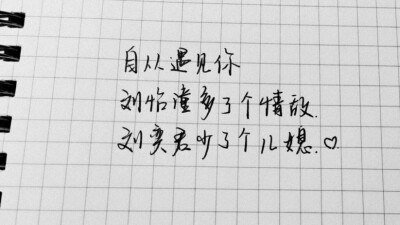 自从遇见你
刘怡潼多了个情敌.
刘奕君少了个儿媳.♡